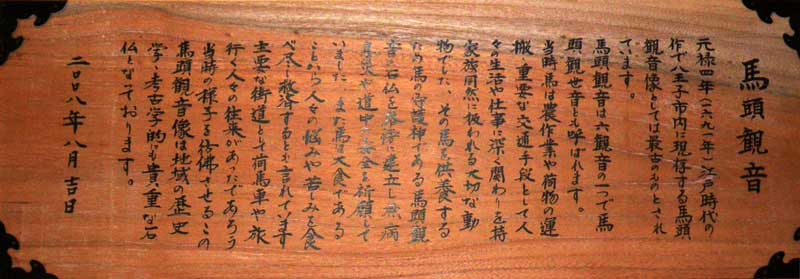 馬頭観音
元禄四年(一六九一年)江戸時代の
作で八王子市内に現存する馬頭
観音像としては最古のものとされ
ています。
馬頭観音は六観音の一つで馬
頭観世音とも呼ばれます。
当時、馬は農作業や荷物の運
搬、重要な交通手段として人
々の生活や仕事に深く関わりを持
家族同然に扱われる大切な動
物でした。その馬を供養する
ため馬の守護神である馬頭観
音の石仏を各所に建立し無病
息災や道中の安全を祈願して
いました。また馬は大食である
ことから人々の悩みや苦しみを食
べ尽し救済するとも言われています
主要な街道として荷馬車や旅
行く人々の往来があったであろう
当時の様子を彷彿させるこの
馬頭観音像は地域の歴史
学、考古学的にも貴重な石
仏となっております。
二〇〇八年八月吉日